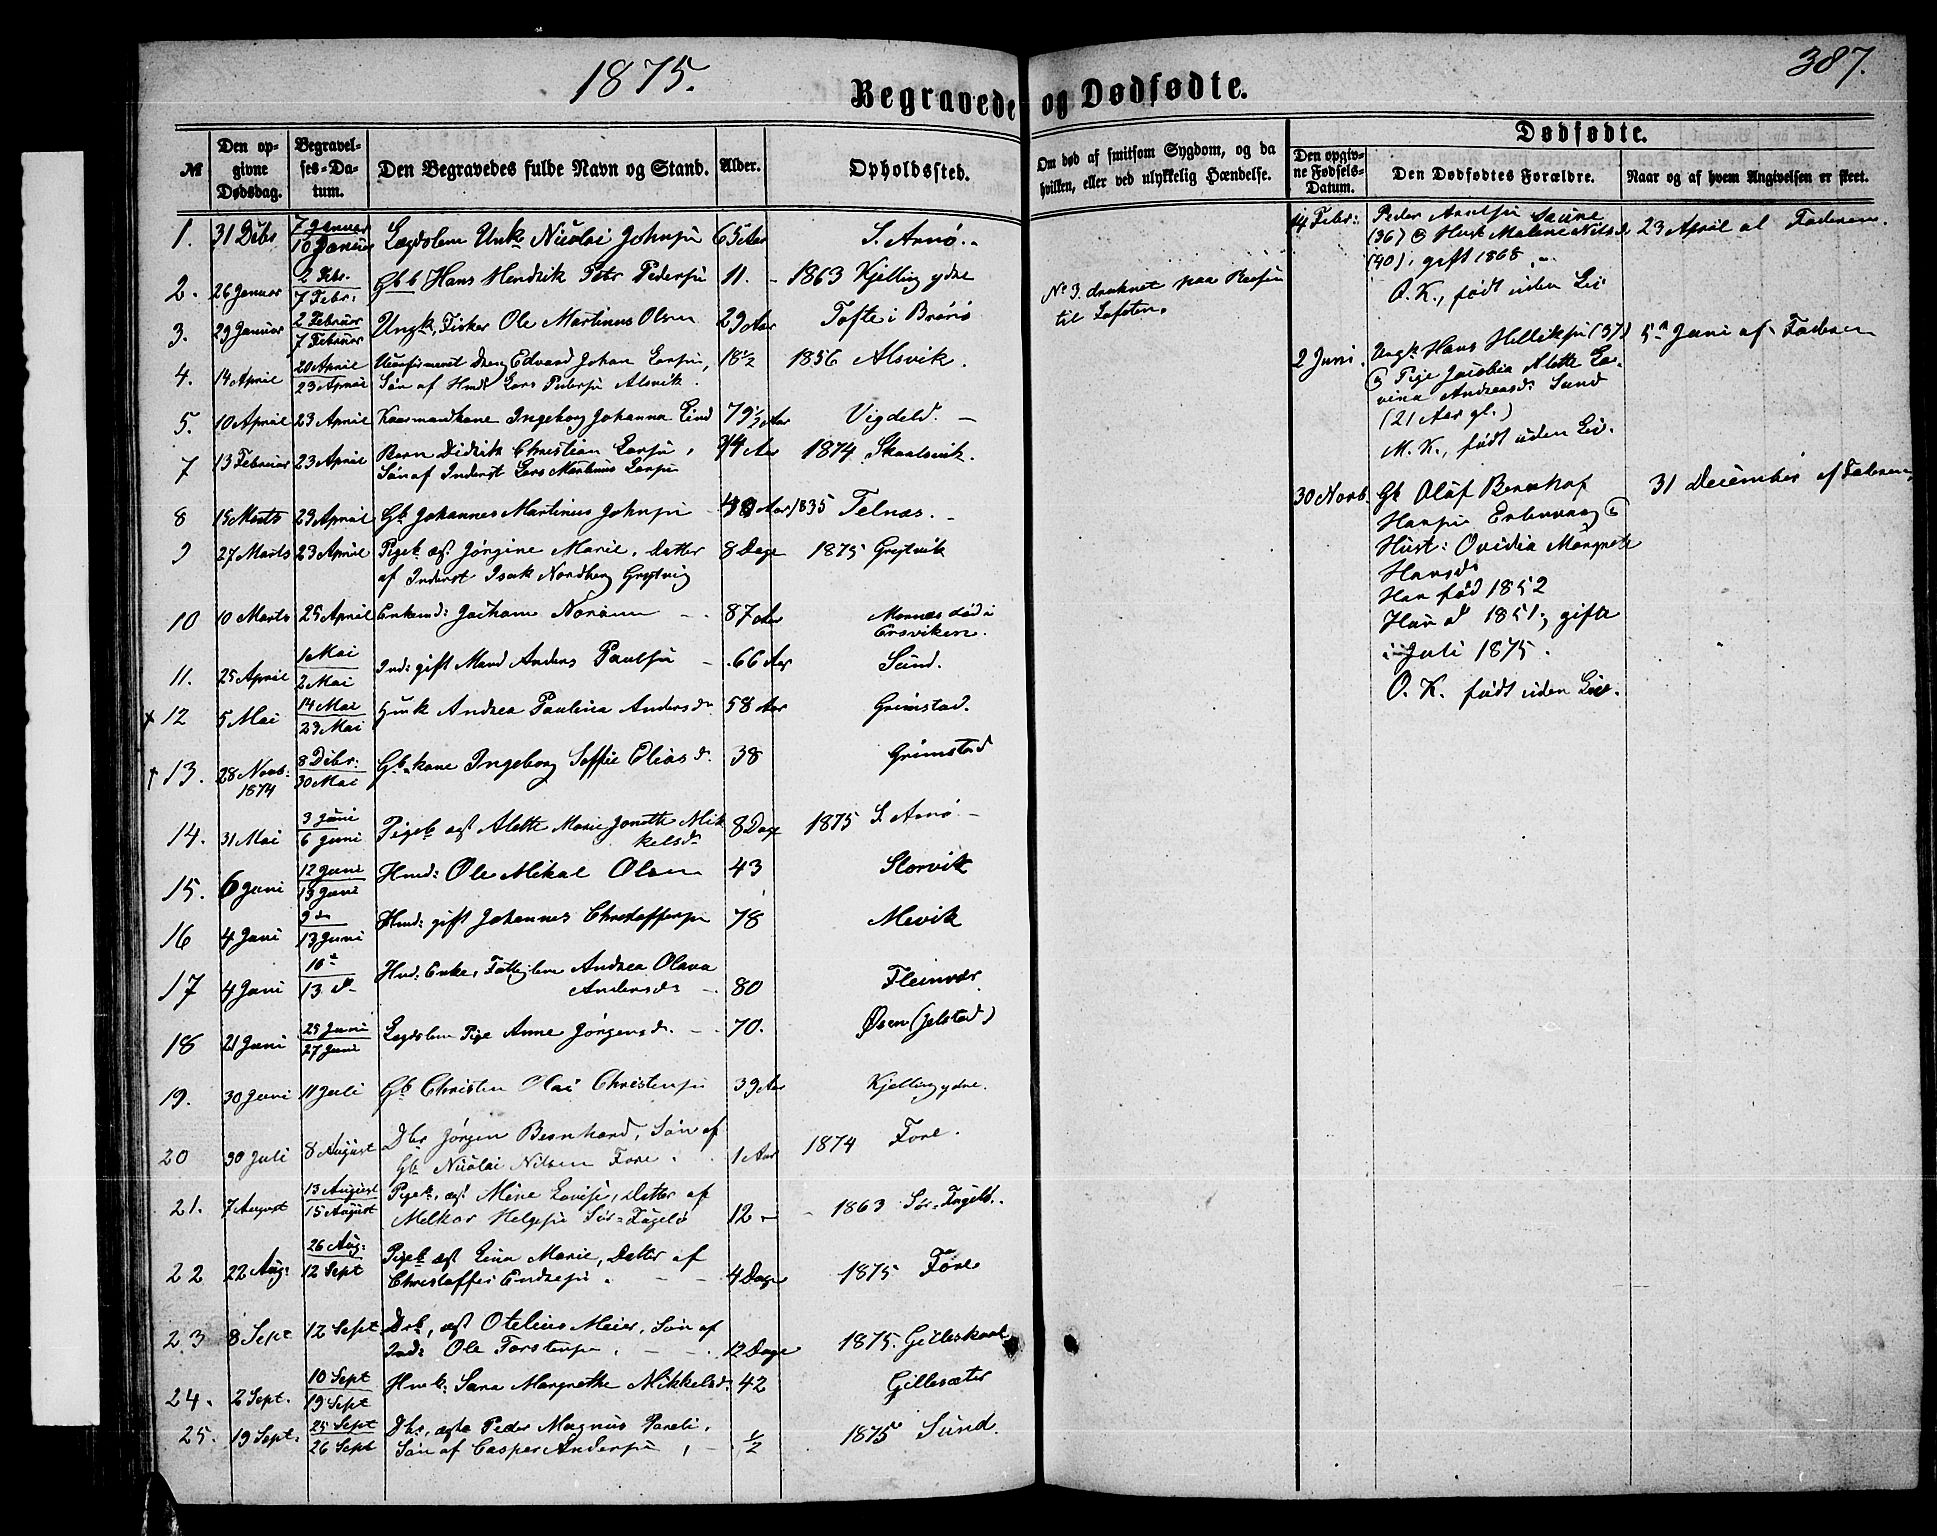 1875.
387.
Begravede og Dødfødte.
№
Den opgivne Dødsdag.
Begravelses-Datum.
Den Begravedes fulde Navn og Stand.
Alder.
Opholdssted.
Om død af smitsom Sygdom, og da hvilken, eller ved ulykkelig Hændelse.
Dødfødte.
Den opgivne Fødsels-Datum.
Den Dødfødtes Forældre.
Naar og af hvem Angivelsen er skeet.
1. 31 Dcbr 7 Januar 10 Januar Lægdslem Unk. Nicolai Johnsen 65 Aar S. Arnø.
2. 26 Januar 2 Febr. 7 Febr: Gbb Hans Hendrik Petr Pedersen 11. 1863 Kjelling ydre
3. 29 Januar 2 Februar 7 Februar Ungk. Fisker Ole Martinus Olsen 29 Aar Tofte i Brønø
No 3. druknet paa Reisen
til Lofoten.
4. 14 April 20 April 23 April Uconfirmeret Dreng Edvard Johan Larsen, 18½ 1856 Alsvik.
Søn af Hmd Lars Pedersen Alsvik.
5. 10 April 23 April Kaarmandkone Ingeborg Johanna Eind 79½ Aar Vigdeld.
7 13 Februar 23 April Barn Didrik Christian Larsen, ¼ Aar 1874 Skaalsvik.
Søn af Inderst Lars Martinus Larsen
8 15 Marts 23 April Gb Johannes Martinus Johnsen 40 Aar 1835 Telnæs.
9 27 Marts 23 April Pigeb. ægt Jørgine Marie, Datter 8 Dage 1875 Grytvik
af Inderst Isak Nordberg Grytvig
10 10 Marts 25 April Enkemd: Jochum Norum 87 Aar Mornæs død i
Ersviken.
11. 25 April 1 Mai 2 Mai Ind: gift Mand Anders Paulsen 66 Aar Sund.
+ 12 5 Mai 14 Mai 23 Mai Huk Andrea Paulina Andersdr 58 Aar Grimstad.
+ 13. 28 Novb: 1874 8 Dcbr: 30 Mai Gb. kone Ingeborg Soffie Eliasd. 38 Grimstad
14. 31 Mai 3 Juni 6 Juni Pigeb ægt Alette Marie Jonette Mik 8 Dage 1875 S. Arnø
kelsdr
15. 6 Juni 12 Juni 13 Juni Hmd: Ole Mikal Olsen 43 Storvik
16 4 Juni 9 dr 13 Juni Hmd: gift Johannes Christoffersen 78 Mevik
17 4 Juni 10 13 dr Hmd: Enke, Fattiglem Andrea Olava
Andersdr 80 Fleinvær
18 21 Juni 25 Juni 27 Juni Lægdslem Pige Anne Jørgensd. 70. Øsen (Jelstad)
19. 30 Juni 11 Juli Gb Christen Olai Christensen 39 Aar Kjelling ydre.
20 30 Juli 8 August Dbr Jørgen Bernhard, Søn af
Gb Nicolai Nilsen Fore. 1 Aar 1874 Fore.
21. 7 August 13 August 15 August Pigeb. ægt Mine Lovise, Datter af
Melkor Helgesen Sør-Fugelø 12 1863 Sør-Fugelø.
22 22 Aug: 26 Aug: 12 Sept Pigeb ægt Lina Marie, Datter af
Christoffer Endresen. 4 Dage 1875 Fore
23 8 Sept 12 Sept Drb, ægt Otelius Meier, Søn af
Ind: Ole Torstensen 12 Dage 1875. Gilleskaal
24. 2 Sept. 10 Sept 19 Sept Hmk: Sara Margrethe Mikkelsd. 42 Gillesæter
25. 19 Sept. 25 Sept 26 Sept Dbr, ægte Peder Magnus Pareli,
Søn af Casper Andersen ½ 1875 Sund.
14 Febr: Peder Arntsen Saune
(36) & Hust. Malene Nilsd. 23 April af Faderen.
(40), gift 1868.
O. K., født uden Liv
2 Juni. Ungk Hans Hilleksen (37) 5 Juni af Faderen
& Pige Jacobia Alette La-
vina Andreasd. Sund
(21 Aar gl.)
M. K., født uden Liv.
30 Novb. Gb Olaf Bernhof 31 December af Faderen
Hansen Enkenvaag &
Hust: Ovidia Margrete
Hansdr
Han fød 1852
Hun d 1851, gifte
i Juli 1875.
O. K. født uden Liv.